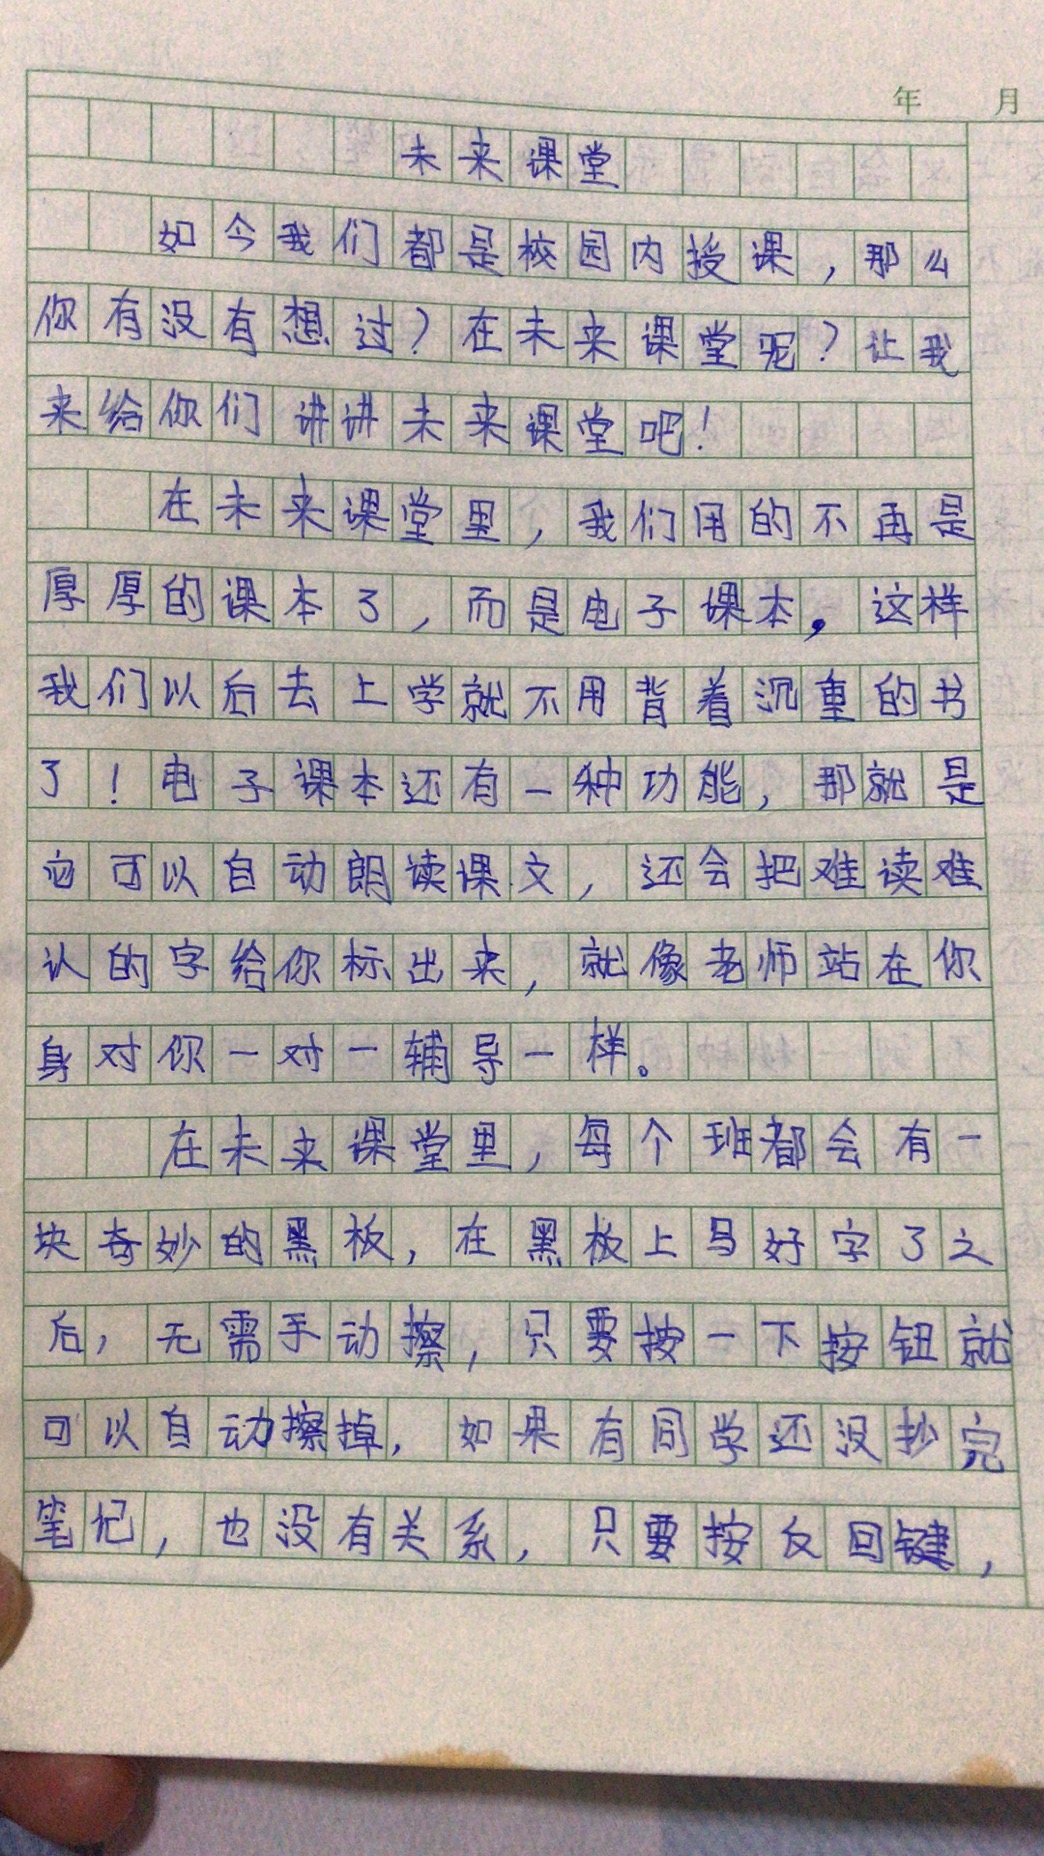 年 月
未来课堂
如今我们都是校园内授课，那么
你有没有想过？在未来课堂呢？让我
来给你们讲讲未来课堂吧！
在未来课堂里，我们用的不再是
厚厚的课本了，而是电子课本，这样
我们以后去上学就不用背着沉重的书
了！电子课本还有一种功能，那就是
它可以自动朗读课文，还会把难读难
认的字给你标出来，就像老师站在你
身对你一对一辅导一样。
在未来课堂里，每个班都会有一
块奇妙的黑板，在黑板上写好字了之
后，无需手动擦，只要按一下按钮就
可以自动擦掉，如果有同学还没抄完
笔记，也没有关系，只要按反回键，